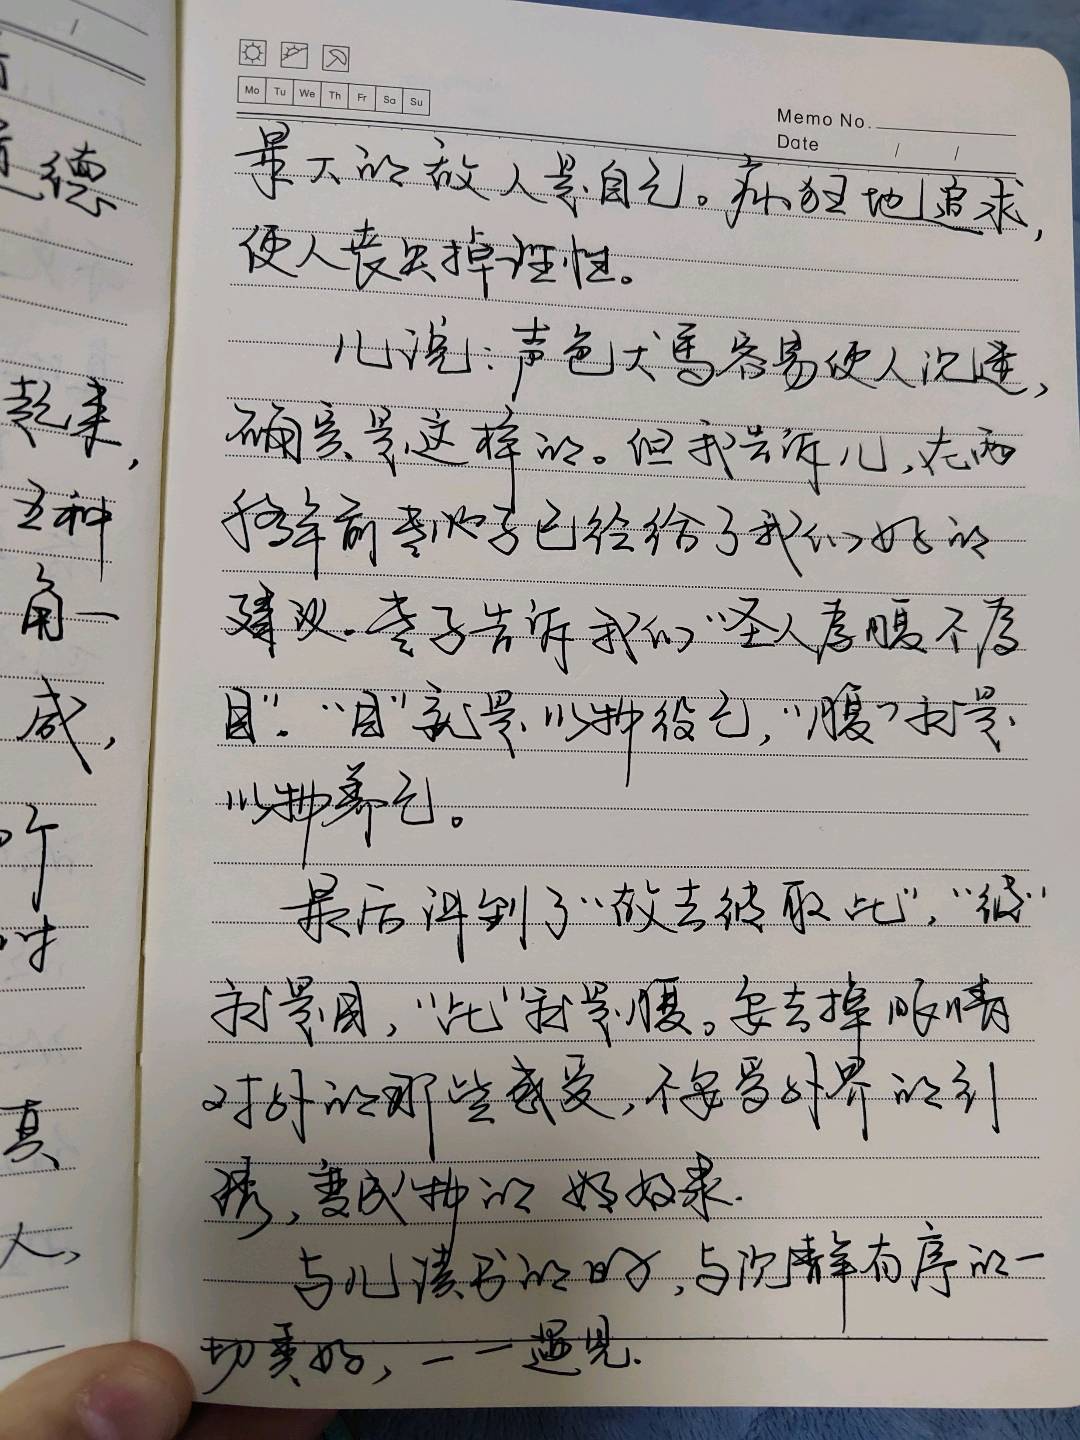 德
起来,
五种
角一
咸,
个
时
真
人,
Mo Tu We Th Fr Sa Su
Memo No.
Date / /
最大的敌人是自己。疯狂地追求,
使人丧失掉理性。
儿说:声色犬马容易使人沉迷,
确实是这样的。但我告诉儿,在两
千年前老子已经给了我们好的
建议。老子告诉我们“圣人为腹不为
目”。“目”就是以物役己,“腹”就是
以物养己。
最后讲到了“故去彼取此”,“彼”
就是目,“此”就是腹。要去掉眼睛
对外的那些感受,不要受外界的引
诱,变成物的奴隶.
与儿读书的时候,与沉静有序的一
切美好,一一遇见.